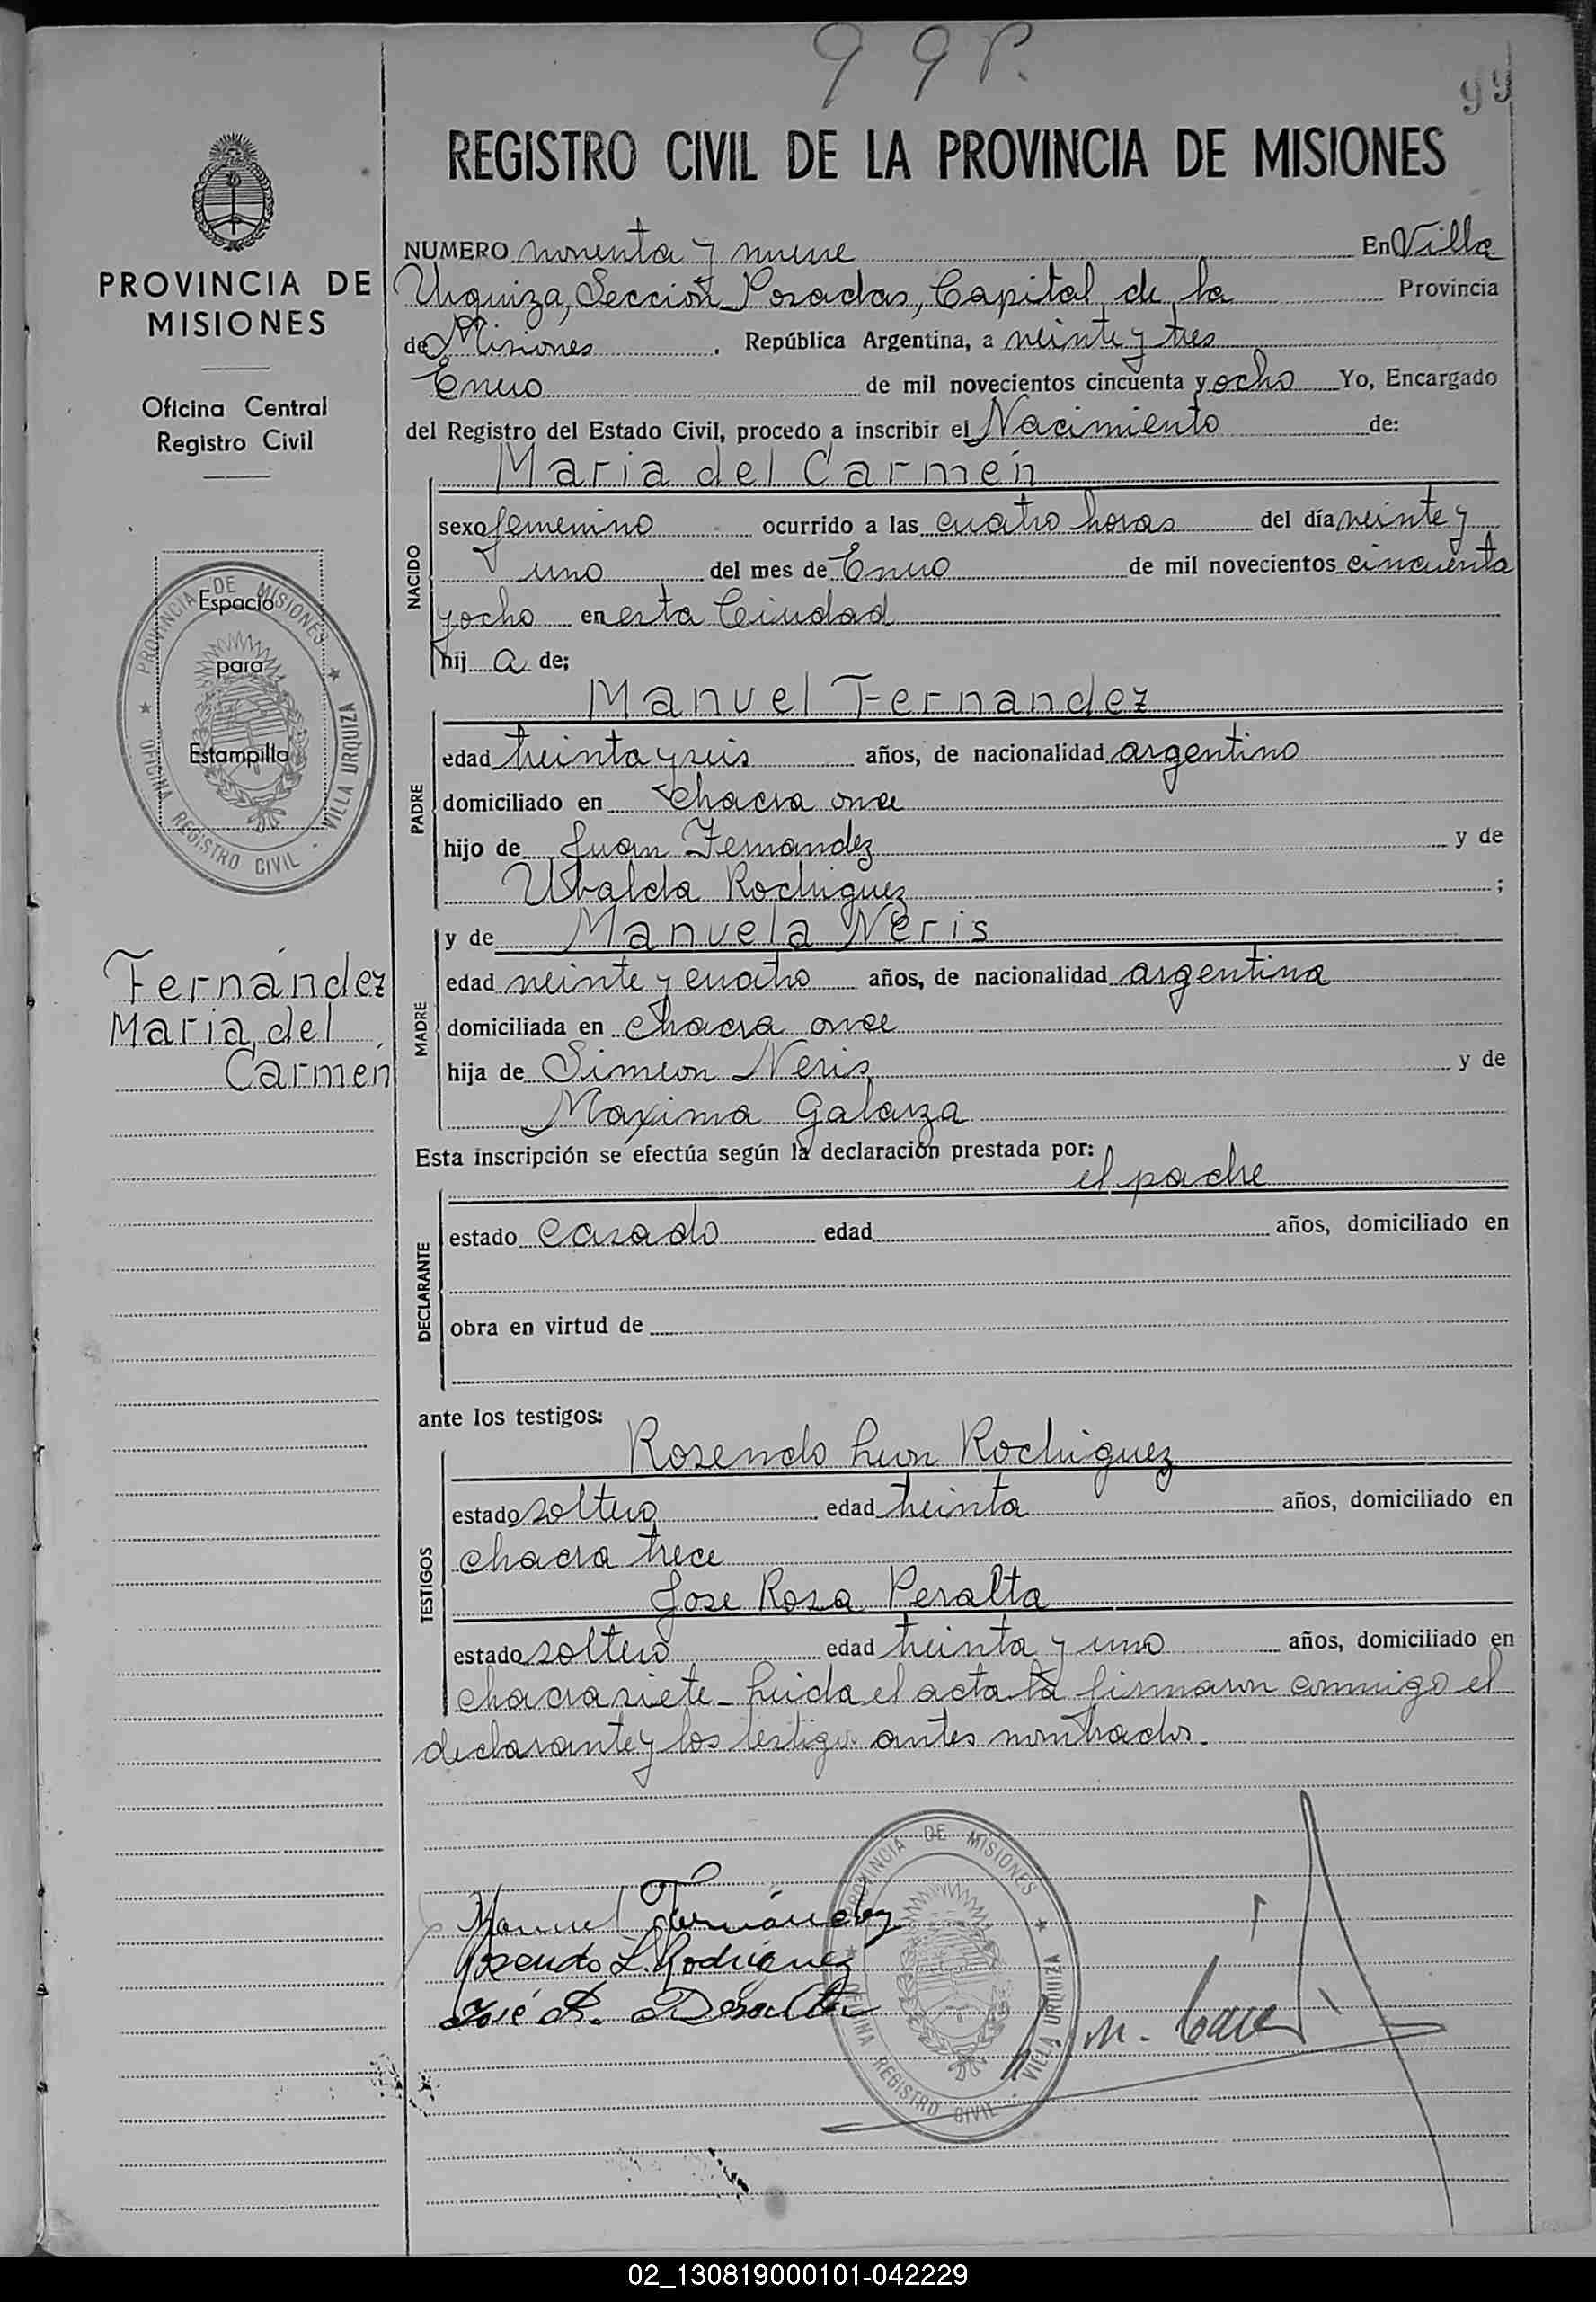 99 P.
99
PROVINCIA DE
MISIONES
Oficina Central
Registro Civil
PROVINCIA DE MISIONES
OFICINA REGISTRO CIVIL - VILLA URQUIZA
Espacio
para
Estampilla
Fernández
María del
Carmen
REGISTRO CIVIL DE LA PROVINCIA DE MISIONES
NUMERO noventa y nueve En Villa
Urquiza, Sección Posadas, Capital de la Provincia
de Misiones. República Argentina, a veinte y tres
Enero de mil novecientos cincuenta y ocho Yo, Encargado
del Registro del Estado Civil, procedo a inscribir el Nacimiento de:
NACIDO
Maria del Carmen
sexo femenino ocurrido a las cuatro horas del día veinte y
uno del mes de Enero de mil novecientos cincuenta
y ocho en esta Ciudad
hij a de;
PADRE
Manuel Fernandez
edad treinta y seis años, de nacionalidad argentino
domiciliado en chacra once
hijo de Juan Fernandez y de
Ubalda Rodriguez ;
MADRE
y de Manuela Neris
edad veinte y cuatro años, de nacionalidad argentina
domiciliada en chacra once
hija de Simeon Neris y de
Maxima Galarza
Esta inscripción se efectúa según la declaración prestada por:
el padre
DECLARANTE
estado casado edad años, domiciliado en
obra en virtud de
ante los testigos:
TESTIGOS
Rosendo Leon Rodriguez
estado soltero edad treinta años, domiciliado en
chacra trece
Jose Rosa Peralta
estado soltero edad treinta y uno años, domiciliado en
chacra siete - Leida el acta la firmaron conmigo el
declarante y los testigos antes nombrados.
Manuel Fernández
Rosendo L. Rodriguez
José R. Peralta
PROVINCIA DE MISIONES
OFICINA REGISTRO CIVIL - VILLA URQUIZA
02_130819000101-042229